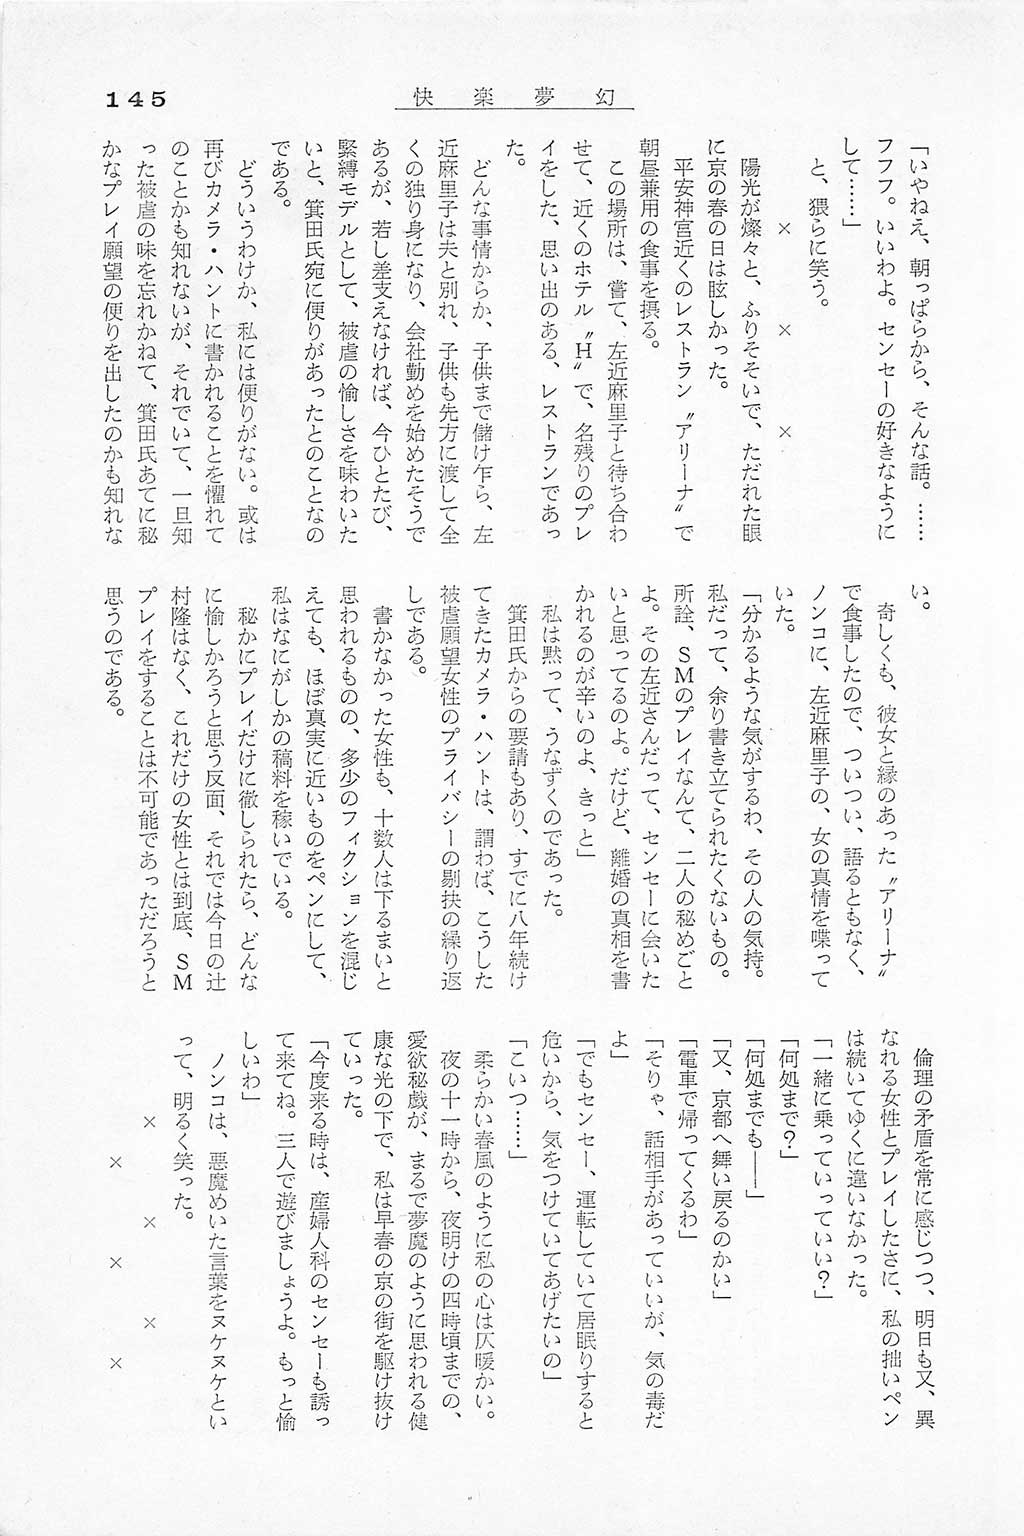 145
快楽夢幻
「いやねえ、朝っぱらから、そんな話。……
フフフ。いいわよ。センセーの好きなように
して……」
と、猥らに笑う。
×　×　×
陽光が燦々と、ふりそそいで、ただれた眼
に京の春の日は眩しかった。
平安神宮近くのレストラン〝アリーナ〟で
朝昼兼用の食事を摂る。
この場所は、嘗て、左近麻里子と待ち合わ
せて、近くのホテル〝H〟で、名残りのプレ
イをした、思い出のある、レストランであっ
た。
どんな事情からか、子供まで儲け乍ら、左
近麻里子は夫と別れ、子供も先方に渡して全
くの独り身になり、会社勤めを始めたそうで
あるが、若し差支えなければ、今ひとたび、
緊縛モデルとして、被虐の愉しさを味わいた
いと、箕田氏宛に便りがあったとのことなの
である。
どういうわけか、私には便りがない。或は
再びカメラ・ハントに書かれることを懼れて
のことかも知れないが、それでいて、一旦知
った被虐の味を忘れかねて、箕田氏あてに秘
かなプレイ願望の便りを出したのかも知れな
い。
奇しくも、彼女と縁のあった〝アリーナ〟
で食事したので、ついつい、語るともなく、
ノンコに、左近麻里子の、女の真情を喋って
いた。
「分かるような気がするわ、その人の気持。
私だって、余り書き立てられたくないもの。
所詮、SMのプレイなんて、二人の秘めごと
よ。その左近さんだって、センセーに会いた
いと思ってるのよ。だけど、離婚の真相を書
かれるのが辛いのよ、きっと」
私は黙って、うなずくのであった。
箕田氏からの要請もあり、すでに八年続け
てきたカメラ・ハントは、謂わば、こうした
被虐願望女性のプライバシーの剔抉の繰り返
しである。
書かなかった女性も、十数人は下るまいと
思われるものの、多少のフィクションを混じ
えても、ほぼ真実に近いものをペンにして、
私はなにがしかの稿料を稼いでいる。
秘かにプレイだけに徹しられたら、どんな
に愉しかろうと思う反面、それでは今日の辻
村隆はなく、これだけの女性とは到底、SM
プレイをすることは不可能であっただろうと
思うのである。
倫理の矛盾を常に感じつつ、明日も又、異
なれる女性とプレイしたさに、私の拙いペン
は続いてゆくに違いなかった。
「一緒に乗っていっていい？」
「何処まで？」
「何処までも──」
「又、京都へ舞い戻るのかい」
「電車で帰ってくるわ」
「そりゃ、話相手があっていいが、気の毒だ
よ」
「でもセンセー、運転していて居眠りすると
危いから、気をつけていてあげたいの」
「こいつ……」
柔らかい春風のように私の心は仄暖かい。
夜の十一時から、夜明けの四時頃までの、
愛欲秘戯が、まるで夢魔のように思われる健
康な光の下で、私は早春の京の街を駆け抜け
ていった。
「今度来る時は、産婦人科のセンセーも誘っ
て来てね。三人で遊びましょうよ。もっと愉
しいわ」
ノンコは、悪魔めいた言葉をヌケヌケとい
って、明るく笑った。
×　×　×
×　×　×